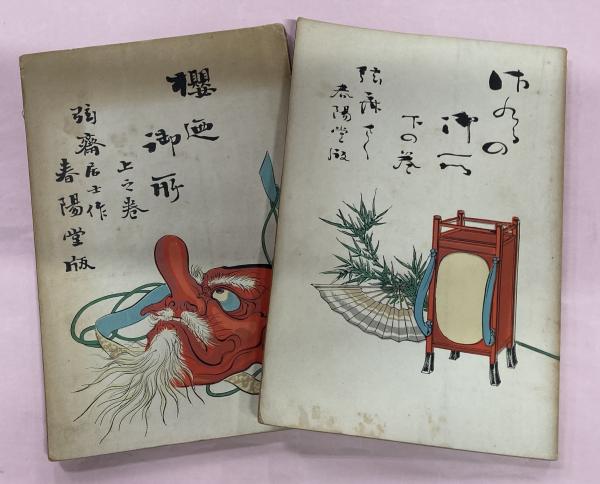 櫻廼
御所
上之巻
弦齋居士作
春陽堂版
さくらの
御所
下の巻
弦齋さく
春陽堂版